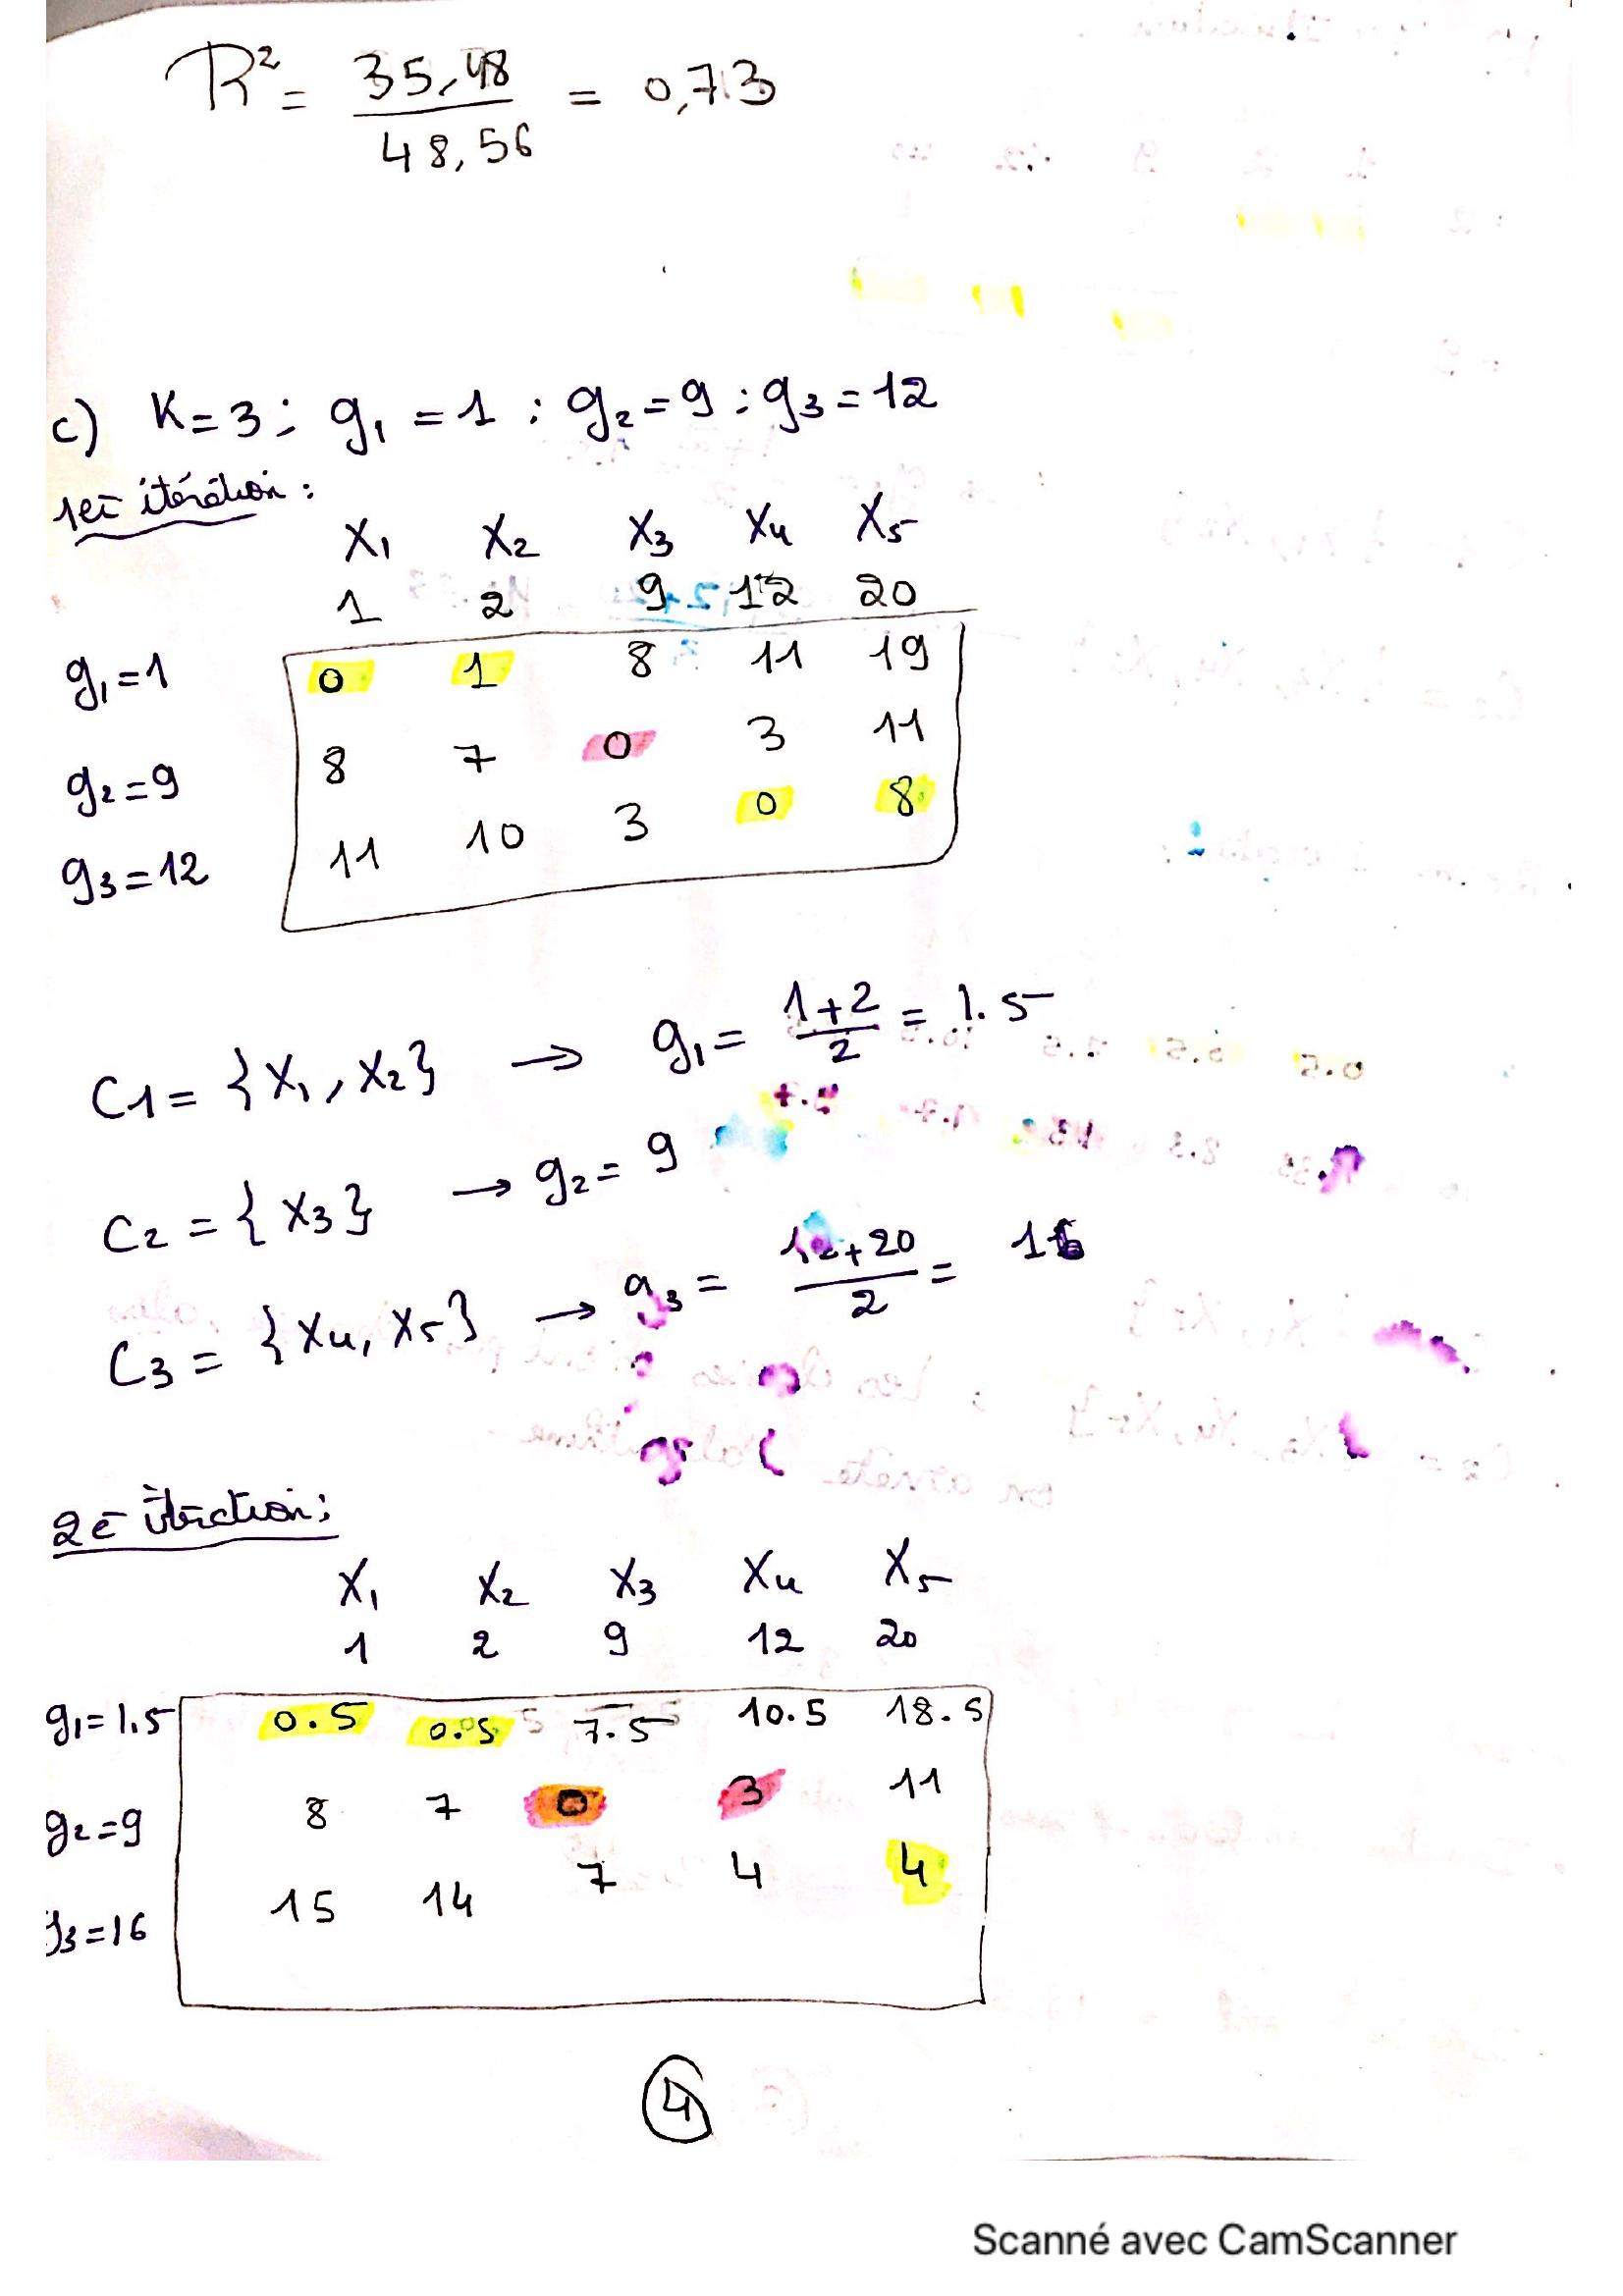 R² = 35,48 / 48,56 = 0,73
c) K=3 : g₁ = 1 : g₂ = 9 : g₃ = 12
1er itération :
X₁ X₂ X₃ X₄ X₅
1 2 9 12 20
g₁=1 0 1 8 11 19
g₂=9 8 7 0 3 11
g₃=12 11 10 3 0 8
C1 = {X₁, X₂} → g₁ = 1+2 / 2 = 1.5
C2 = {X₃} → g₂ = 9
C3 = {X₄, X₅} → g₃ = 12+20 / 2 = 16
2e itération :
X₁ X₂ X₃ X₄ X₅
1 2 9 12 20
g₁=1.5 0.5 0.5 7.5 10.5 18.5
g₂=9 8 7 0 3 11
g₃=16 15 14 7 4 4
4
Scanné avec CamScanner